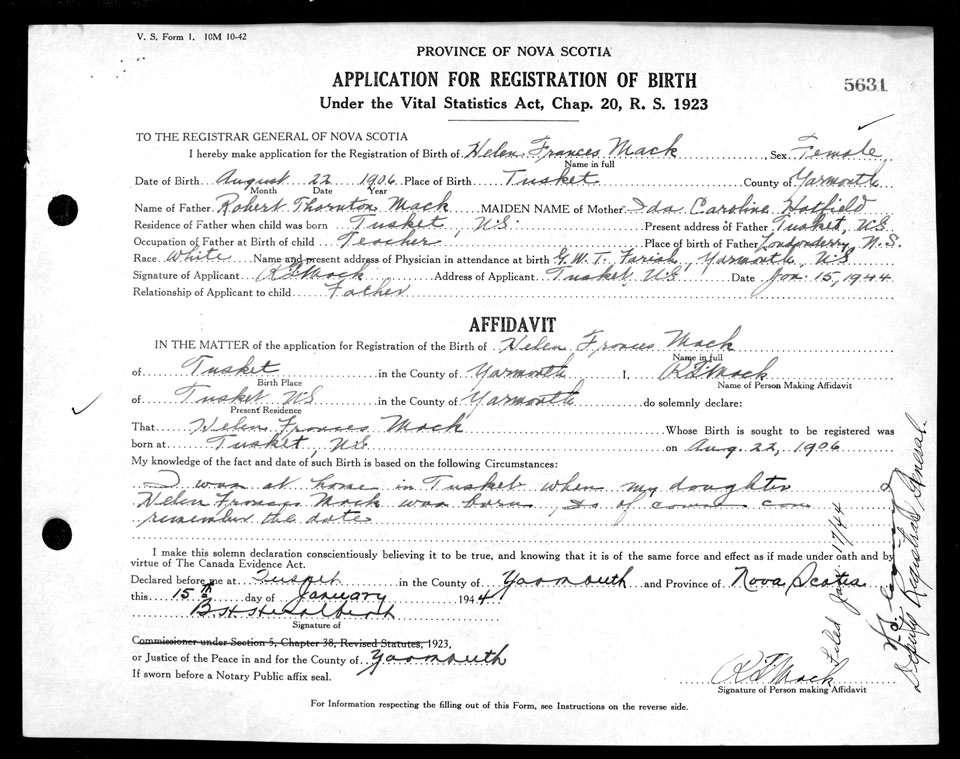 V. S. Form 1. 10M 10-42
PROVINCE OF NOVA SCOTIA
APPLICATION FOR REGISTRATION OF BIRTH
5631
Under the Vital Statistics Act, Chap. 20, R. S. 1923
TO THE REGISTRAR GENERAL OF NOVA SCOTIA
I hereby make application for the Registration of Birth of Helen Frances Mack, Sex Female
Name in full
Date of Birth August 22 1906 Place of Birth Tusket County of Yarmouth
Month Date Year
Name of Father Robert Thornton Mack MAIDEN NAME of Mother Ida Caroline Hatfield
Residence of Father when child was born Tusket, N.S. Present address of Father Tusket, N.S
Occupation of Father at Birth of child Teacher Place of Birth of Father Londonderry, N.S.
Race White Name and present address of Physician in attendance at birth G.W.T. Farish, Yarmouth, N.S
Signature of Applicant R T Mack Address of Applicant Tusket, N.S Date Jan. 15, 1944
Relationship of Applicant to child Father
AFFIDAVIT
IN THE MATTER of the application for Registration of the Birth of Helen Frances Mack
Name in full
of Tusket in the County of Yarmouth I, R T Mack
Birth Place Name of Person Making Affidavit
of Tusket N S in the County of Yarmouth do solemnly declare:
Present Residence
That Helen Frances Mack Whose Birth is sought to be registered was
born at Tusket, N S on Aug. 22, 1906
My knowledge of the fact and date of such Birth is based on the following Circumstances:
I was at home in Tusket when my daughter
Helen Frances Mack was born, & of course can
remember the date
I make this solemn declaration conscientiously believing it to be true, and knowing that it is of the same force and effect as if made under oath and by
virtue of The Canada Evidence Act.
Declared before me at Tusket in the County of Yarmouth and Province of Nova Scotia
this 15th day of January 1944
Signature of
Commissioner under Section 5, Chapter 38, Revised Statutes, 1923,
or Justice of the Peace in and for the County of Yarmouth
If sworn before a Notary Public affix seal.
R T Mack
Signature of Person making Affidavit
For Information respecting the filling out of this Form, see Instructions on the reverse side.
Filed Jan. 17/44
Deputy Registrar General.